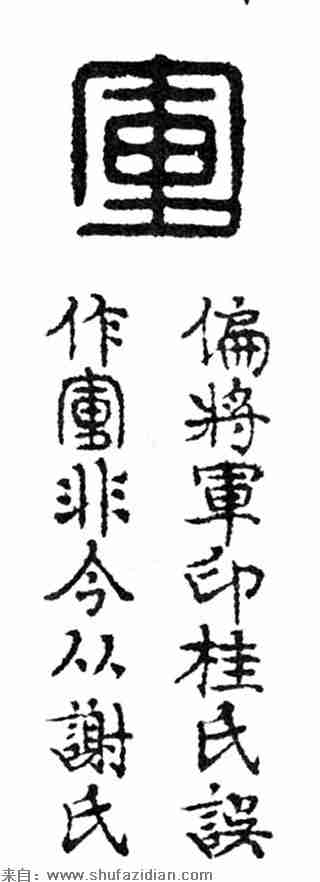 軍
偏將軍印桂氏誤
作非今从謝氏
来自：www.shufazidian.com